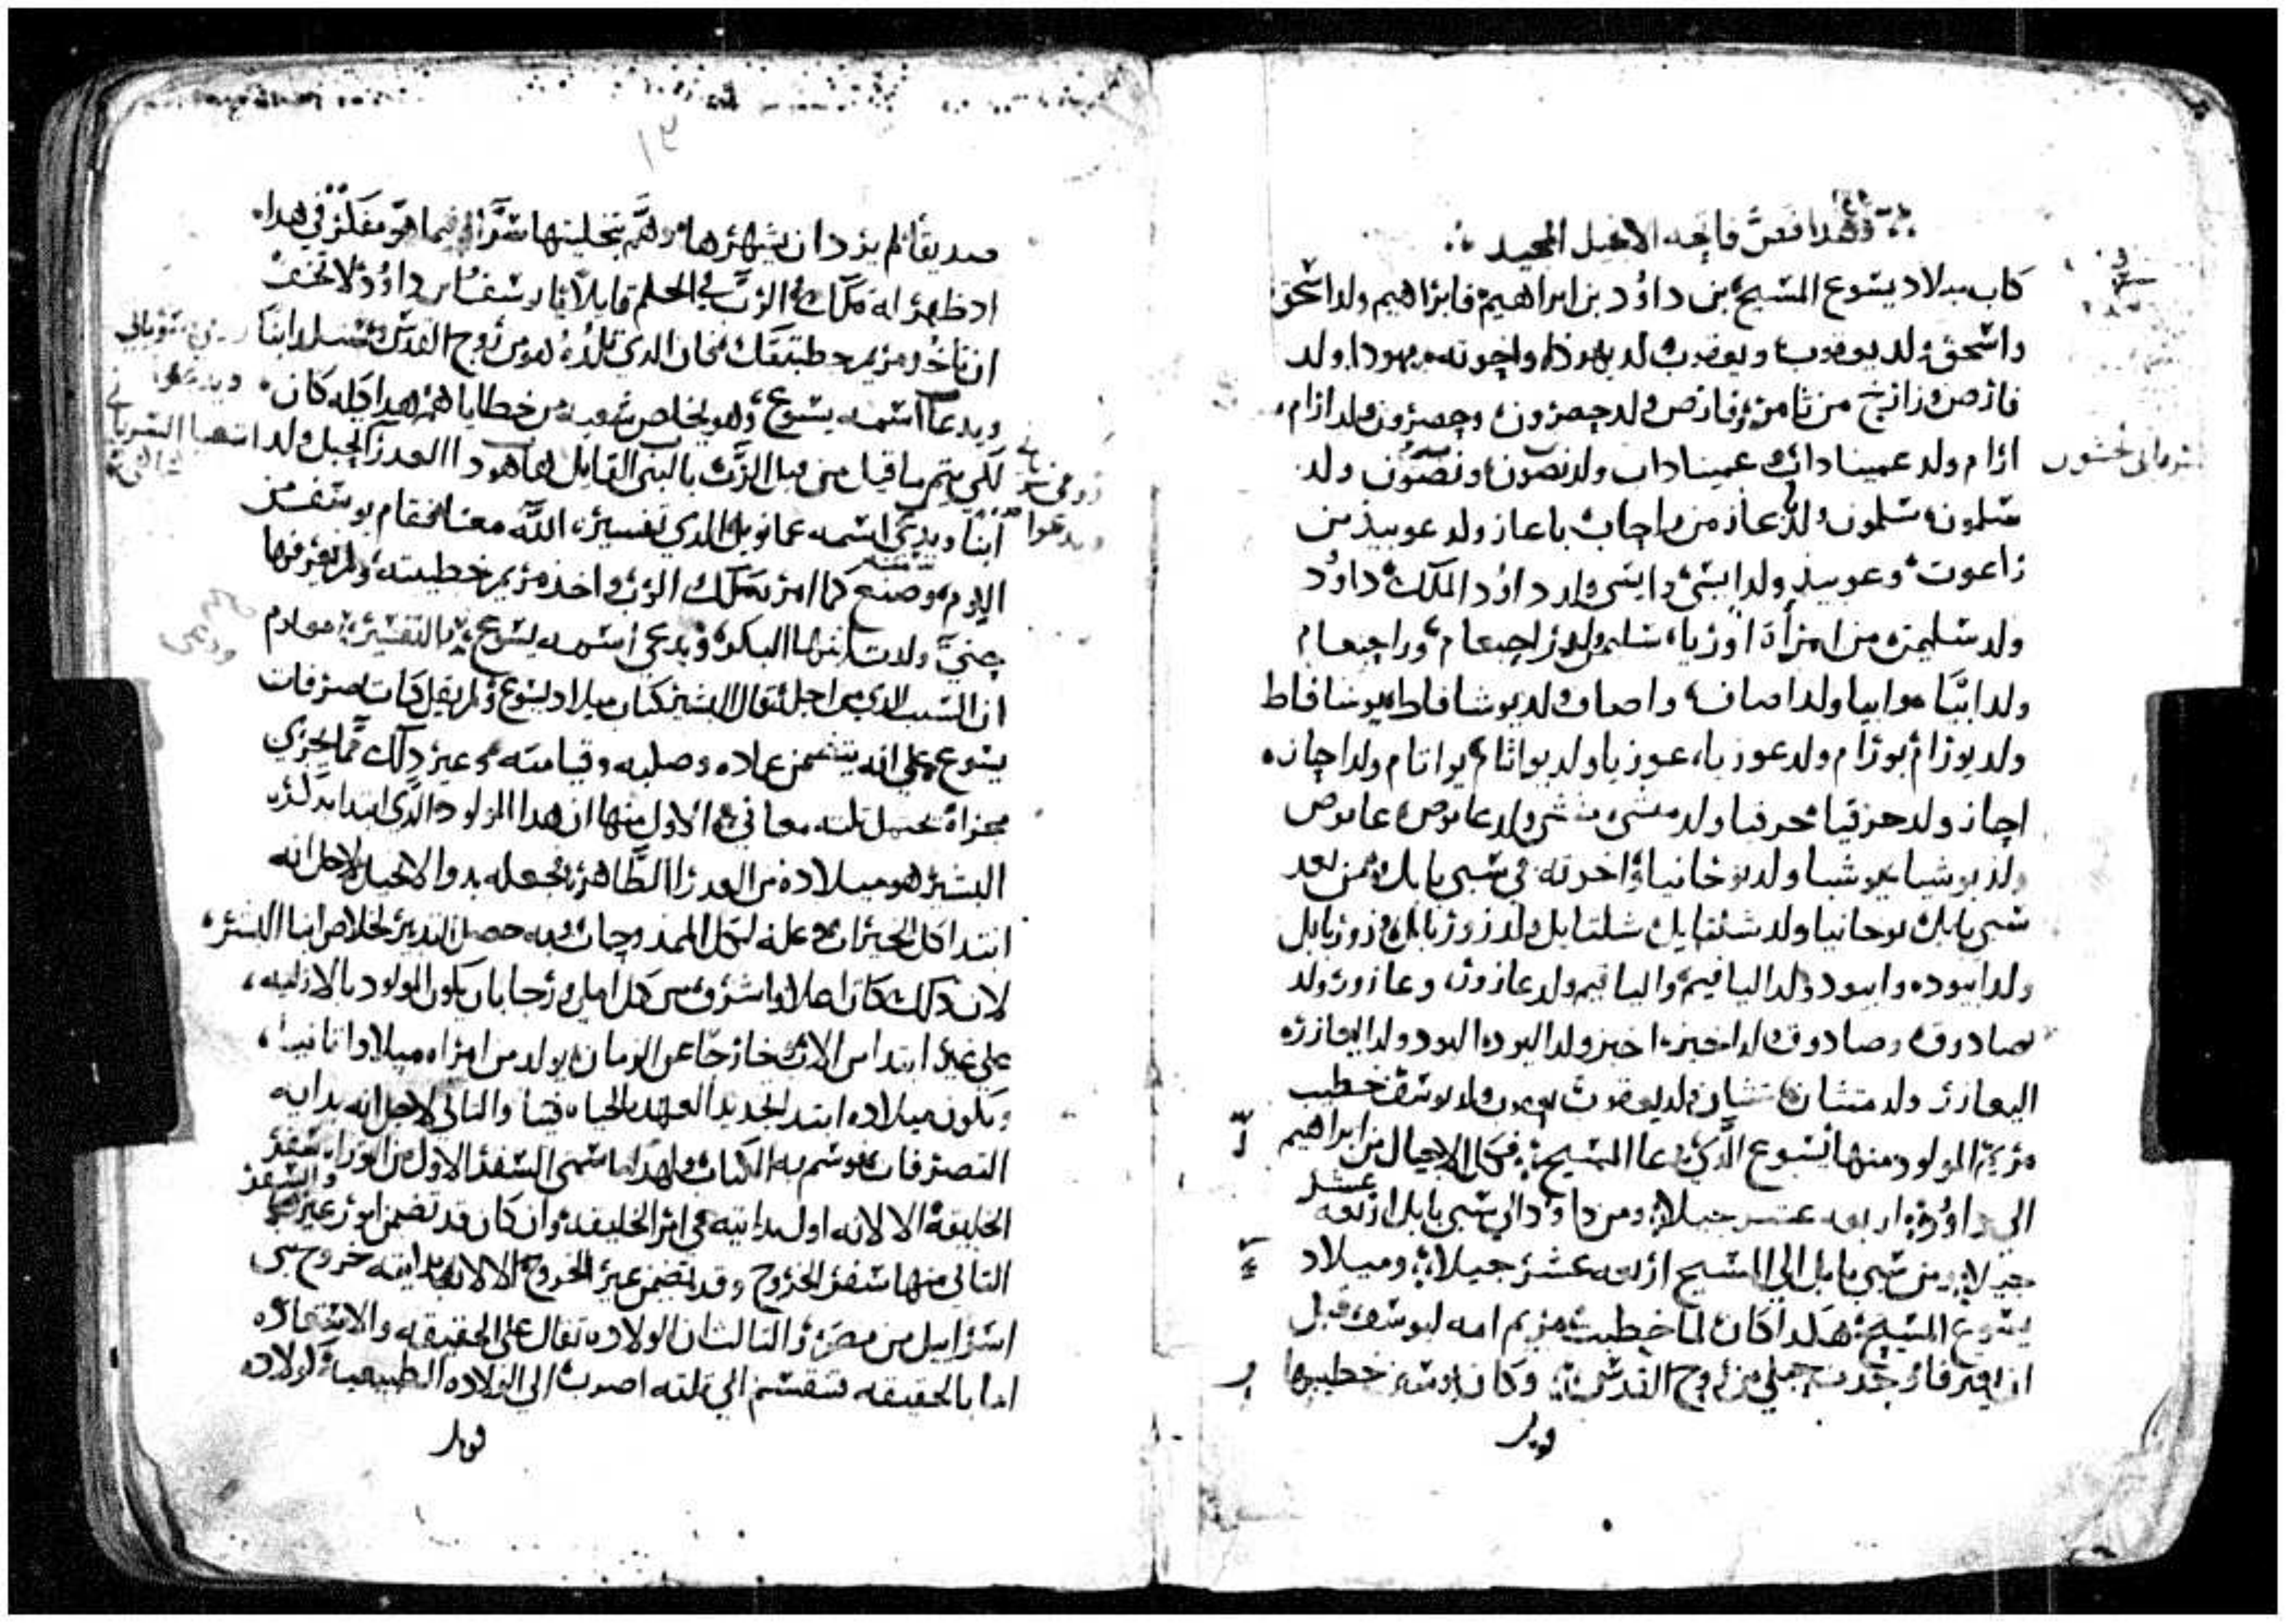 وهدا فص فاتحه الانجيل المجيد
كتاب ميلاد يسوع المسيح بن داوُد بن ابراهيم فابراهيم ولد اسحق
واسحق ولد يعقوب ويعقوب ولد يهودا واخوته ويهودا ولد
فارص وزارح من تامر وفارص ولد حصرون وحصرون ولد ارام
ارام ولد عميناداب عميناداب ولد نصون ونصون ولد
سرياني نحشون
سلمون سلمون ولد باعاز من راحاب باعاز ولد عوبيد من
راعوت وعوبيد ولد ايسى وايسى ولد داوُد الملك داوُد
ولد سليمن من امرأة اوريا سليمن ولد راجبعام وراجبعام
ولد ابيا وابيا ولد اصاف واصاف ولد يوشافاط يوشافاط
ولد يورام يورام ولد عوزيا عوزيا ولد يواتام يواتام ولد احاز
احاز ولد حزقيا حزقيا ولد منسى منسى ولد عاموص عاموص
ولد يوشيا يوشيا ولد يوخانيا واخوته في سبي بابل من بعد
سبي بابل يوخانيا ولد شلتايل شلتايل ولد زوربابل زوربابل
ولد ابيود وابيود ولد الياقيم والياقيم ولد عازور وعازور ولد
صادوق وصادوق ولد اخيز اخيز ولد اليود اليود ولد اليعازر
اليعازر ولد متتان متتان ولد يعقوب يعقوب ولد يوسف خطيب
مريم المولود منها يسوع الذي يدعا المسيح فكل الاجيال من ابراهيم
الى داوُد اربعه عشر جيلا ومن داود الى سبي بابل اربعه عشر
جيلا ومن سبي بابل الى المسيح اربعه عشر جيلا وميلاد
يسوع المسيح هكدا كان لما خطبت مريم امه ليوسف قبل
ان يفترقا وجدت حبلى من روح القدس وكان يوسف خطيبها
صديقا لم يرد ان يشهرها وهم بتخليتها سرا وفيما هو مفكر في هدا
اد ظهر له ملاك الرب في الحلم قايلا يا يوسف بن داوُد لا تخف
ان تاخد مريم خطيبتك فان الدي تلده هو من روح القدس وستلد ابنا
ويدعا اسمه يسوع وهو يخلص شعبه من خطاياهم هدا كله كان
لكي يتم ما قيل من قبل الرب بالنبي القايل ها هودا العدرا تحبل وتلد
ابنا ويدعى اسمه عمانويل الدي تفسيره الله معنا فقام يوسف من
النوم وصنع كما امره ملاك الرب واخذ مريم خطيبته ولم يعرفها
حتى ولدت ابنها البكر ودعي اسمه يسوع التفسير
ان السبب الدي من اجله قال البشير كتاب ميلاد يسوع ولم يقل كتاب تصرفات
يسوع على انه يتضمن عماده وصلبه وقيامته وغير دلك مما يجري
مجراه يحتمل تلته معاني الاول منها ان هدا المولود الذي ابتدا بدكره
البشير هو ميلاده من العدرا الطاهره فجعله بدو الانجيل لاجل انه
ابتدا كل الخيرات وبه حصل التدبير لخلاص ابنا البشر
لان دلك كان اصلا واشرف من كل امل ورجا بان يكون المولود بالازليه
على غير ابتدا من الاب خارجا عن الزمان يولد من امراه ميلادا تانيا
ويكون ميلاده ابتدا لتجديد العهد والحياه فينا والتاني لاجل انه بدايه
التصرفات فوسم به الكتاب ولهدا ما سمى السفر الاول من التوراه سفر
الخليقه الا لانه اول بدايته في امر الخليقه وان كان قد تضمن امور غيرها والسفر
التاني منها سفر الخروج وقد تضمن غير الخروج الا لان بدايته خروج بني
اسرايل من مصر والتالت ان الولاده تقال على الحقيقه والاستعاره
اما بالحقيقه فتنقسم الى تلته اصرب الى الولاده الطبيعيه كولاده